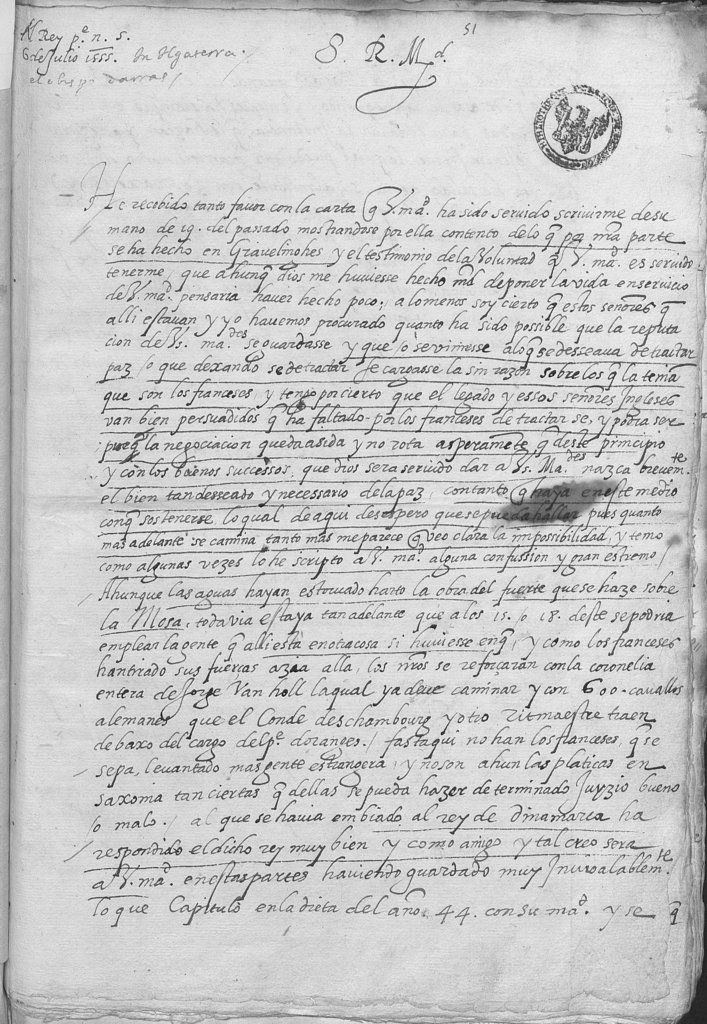 51
Al Rey pe. n. s.
6 de Julio 1555. En Ingaterra.
el obispo darras /
S. R. Md.
He recobido tanto favor con la carta q V. mad. ha sido servido scrivirme de su
mano de 19. del passado mostrandose por ella contento de lo q por mia parte
se ha hecho en Gravelinghes y el testimonio de la Voluntad q V. mad. es servido
tenerme, que ahunq dios me huviesse hecho md de poner la vida en servicio
de V. mad. pensaria haver hecho poco, a lo menos soy cierto q estos señores q
alli estavan y yo havemos procurado quanto ha sido possible que la reputa
cion de Vs. mades se guardasse y que / o se viniesse a lo q se desseava de tractar
paz / o que dexando se de tractar se cargasse la sin razon sobre los q la tenian
que son los franceses, y tengo por cierto que el legado y essos señores Ingleses
van bien persuadidos q ha faltado por los franceses de tractar se, y podra ser
pues q la negociacion queda asida y no rota asperamete q deste principio
y con los buenos successos, que dios sera servido dar a Vs. Mades nazca brevemte
el bien tan desseado y necessario de la paz, con tanto q haya en este medio
con q sostenerse, lo qual de aqui desespero que se pueda hallar pues quanto
mas adelante se camina tanto mas me parece q veo clara la impossibilidad, y temo
como algunas vezes lo he scripto a V. mad. alguna confussion y gran estremo /
Ahunque las aguas hayan estorvado harto la obra del fuerte que se haze sobre
la Mosa, todavia esta ya tan adelante que a los 15. o 18. deste se podria
emplear la gente q alli esta en otra cosa si huviesse en q, y como los franceses
han tirado sus fuercas azia alla, los nros se reforçaran con la coronelia
entera de Jorge Van holl la qual ya deve caminar y con 600. cavallos
alemanes que el Conde de schambourg y otro Ritmaestre traen
debaxo del cargo del pe. doranges. / fasta qui no han los franceses, q se
sepa, levantado mas gente estrangera, y no son ahun las platicas en
saxonia tan ciertas q dellas se pueda hazer determinado Juyzio bueno
/o malo. / al que se havia embiado al rey de dinamarca ha
respondido el dicho rey muy bien y como amigo y tal creo sera
a V. mad. en estas partes haviendo guardado muy Inviolablemte
lo que Capitulo en la dieta del año. 44. con su mad. y se q